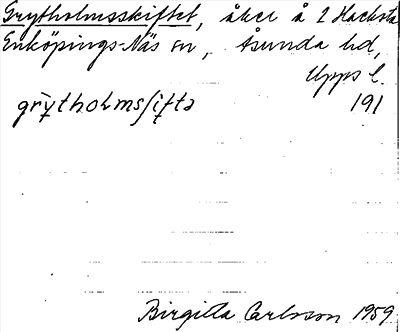 Grytholmsskiftet, åker å 2 Hacksta
Enköpings-Näs sn, Åsunda hd,
Upps l.
grỳtholmsʃiftə 191
Birgitta Carlsson 1959